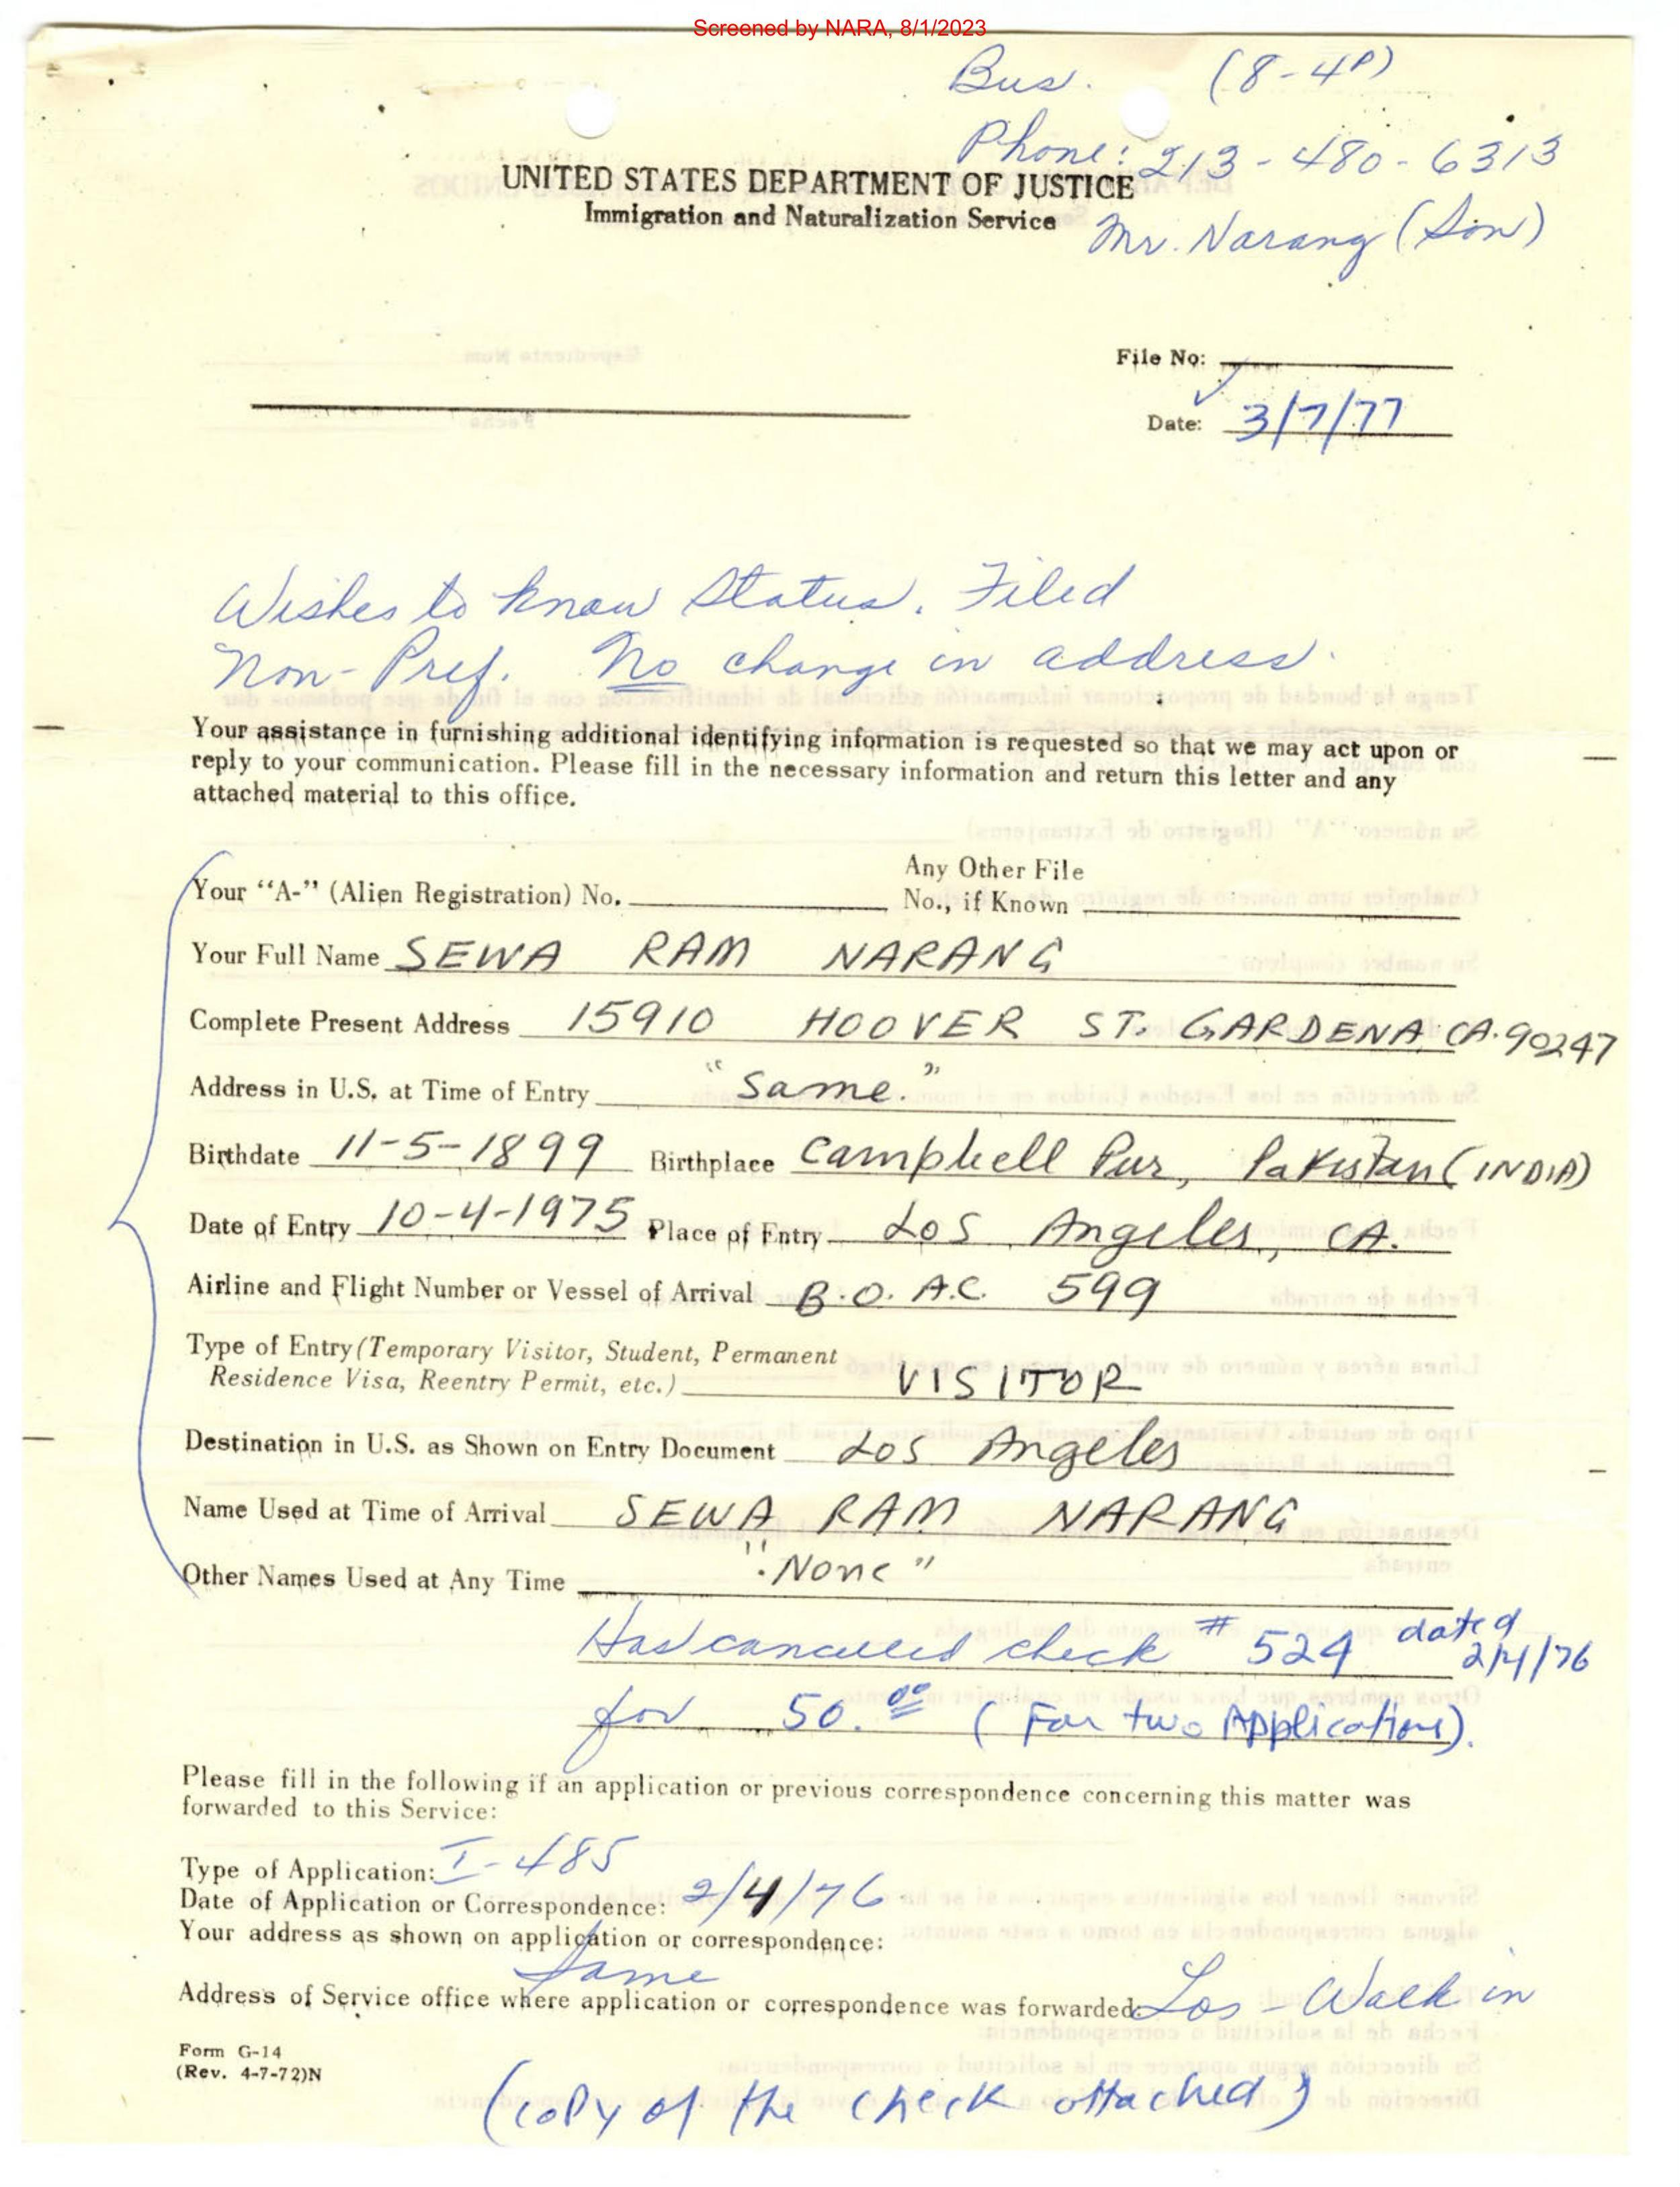 Screened by NARA, 8/1/2023
Bus. (8-4P)
Phone: 213-480-6313
UNITED STATES DEPARTMENT OF JUSTICE
Immigration and Naturalization Service
Mr. Narang (Son)
File No:
Date: 3/7/77
Wishes to know Status. Filed
Non-Pref. No change in address.
Your assistance in furnishing additional identifying information is requested so that we may act upon or
reply to your communication. Please fill in the necessary information and return this letter and any
attached material to this office.
Your "A-" (Alien Registration) No. Any Other File
No., if Known
Your Full Name SEWA RAM NARANG
Complete Present Address 15910 HOOVER ST. GARDENA CA. 90247
Address in U.S. at Time of Entry "Same."
Birthdate 11-5-1899 Birthplace Campbell Pur, Pakistan (INDIA)
Date of Entry 10-4-1975 Place of Entry Los Angeles, CA.
Airline and Flight Number or Vessel of Arrival B.O.A.C. 599
Type of Entry (Temporary Visitor, Student, Permanent
Residence Visa, Reentry Permit, etc.) VISITOR
Destination in U.S. as Shown on Entry Document Los Angeles
Name Used at Time of Arrival SEWA RAM NARANG
Other Names Used at Any Time "None"
Has cancelled check # 524 dated
2/4/76
for 50.00 (For two Applications).
Please fill in the following if an application or previous correspondence concerning this matter was
forwarded to this Service:
Type of Application: I-485
Date of Application or Correspondence: 2/4/76
Your address as shown on application or correspondence:
Same
Address of Service office where application or correspondence was forwarded: Los - Walk in
Form G-14
(Rev. 4-7-72)N
(copy of the check attached)